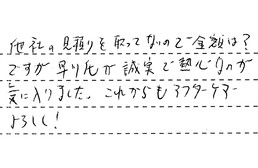 他社の見積りを取ってないので金額は？
ですが早り氏が誠実で熱心なのが
気に入りました。これからもフォローヨロ
よろしく！